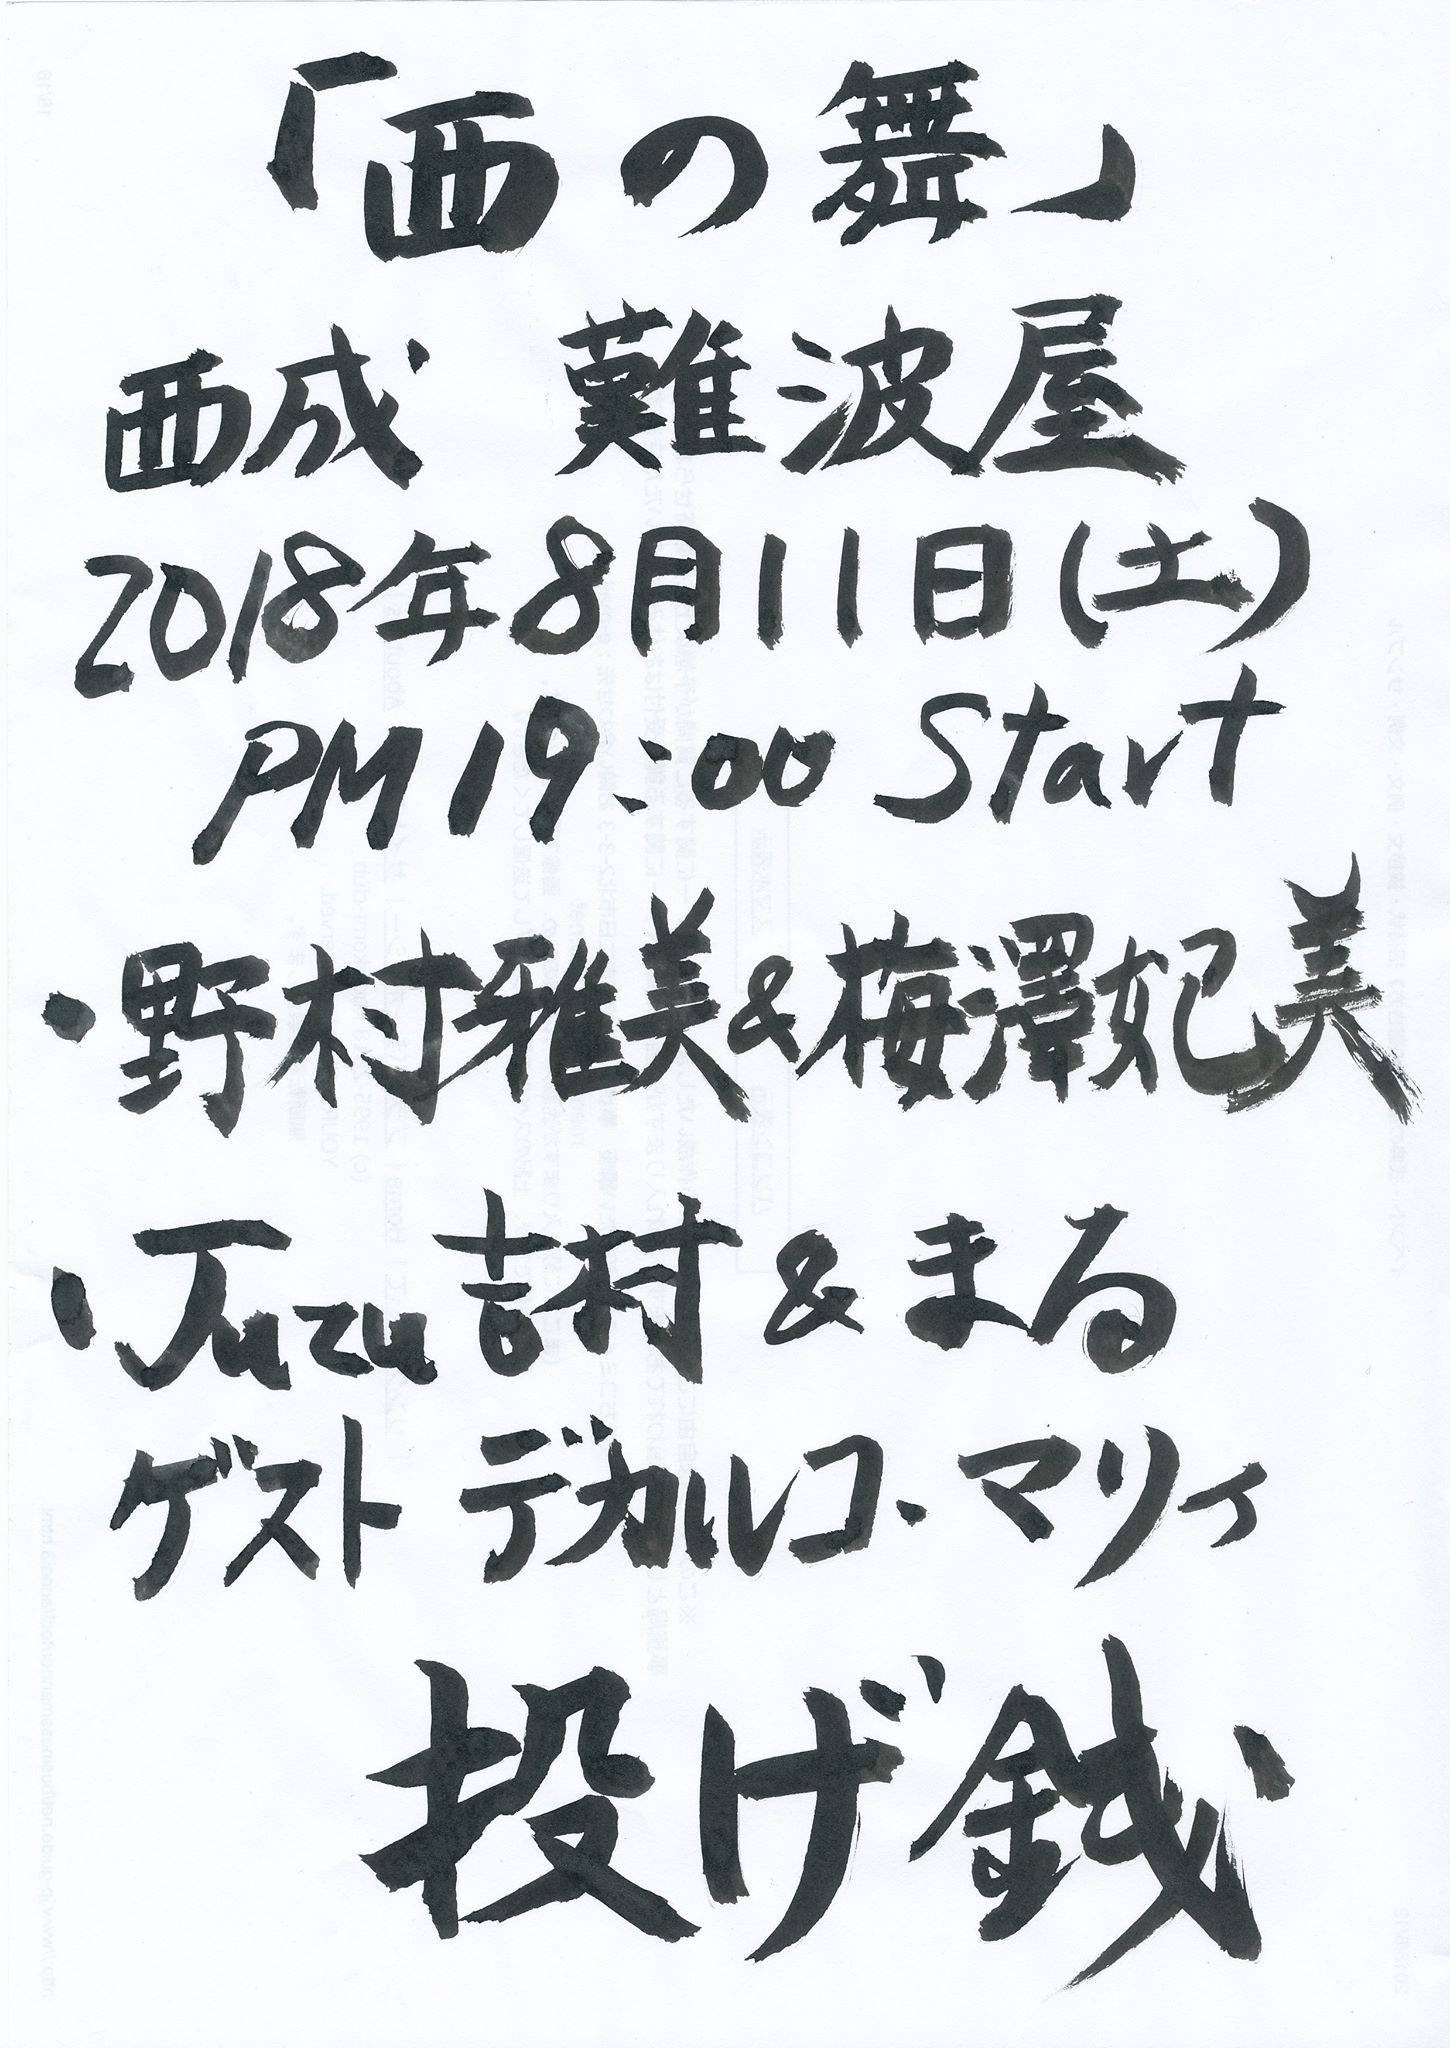 「西の舞」
西成 難波屋
2018年8月11日(土)
PM19:00 Start
・野村雅美&梅澤妃美
・Juzu吉村&まる
ゲスト デカルコ・マリィ
投げ銭